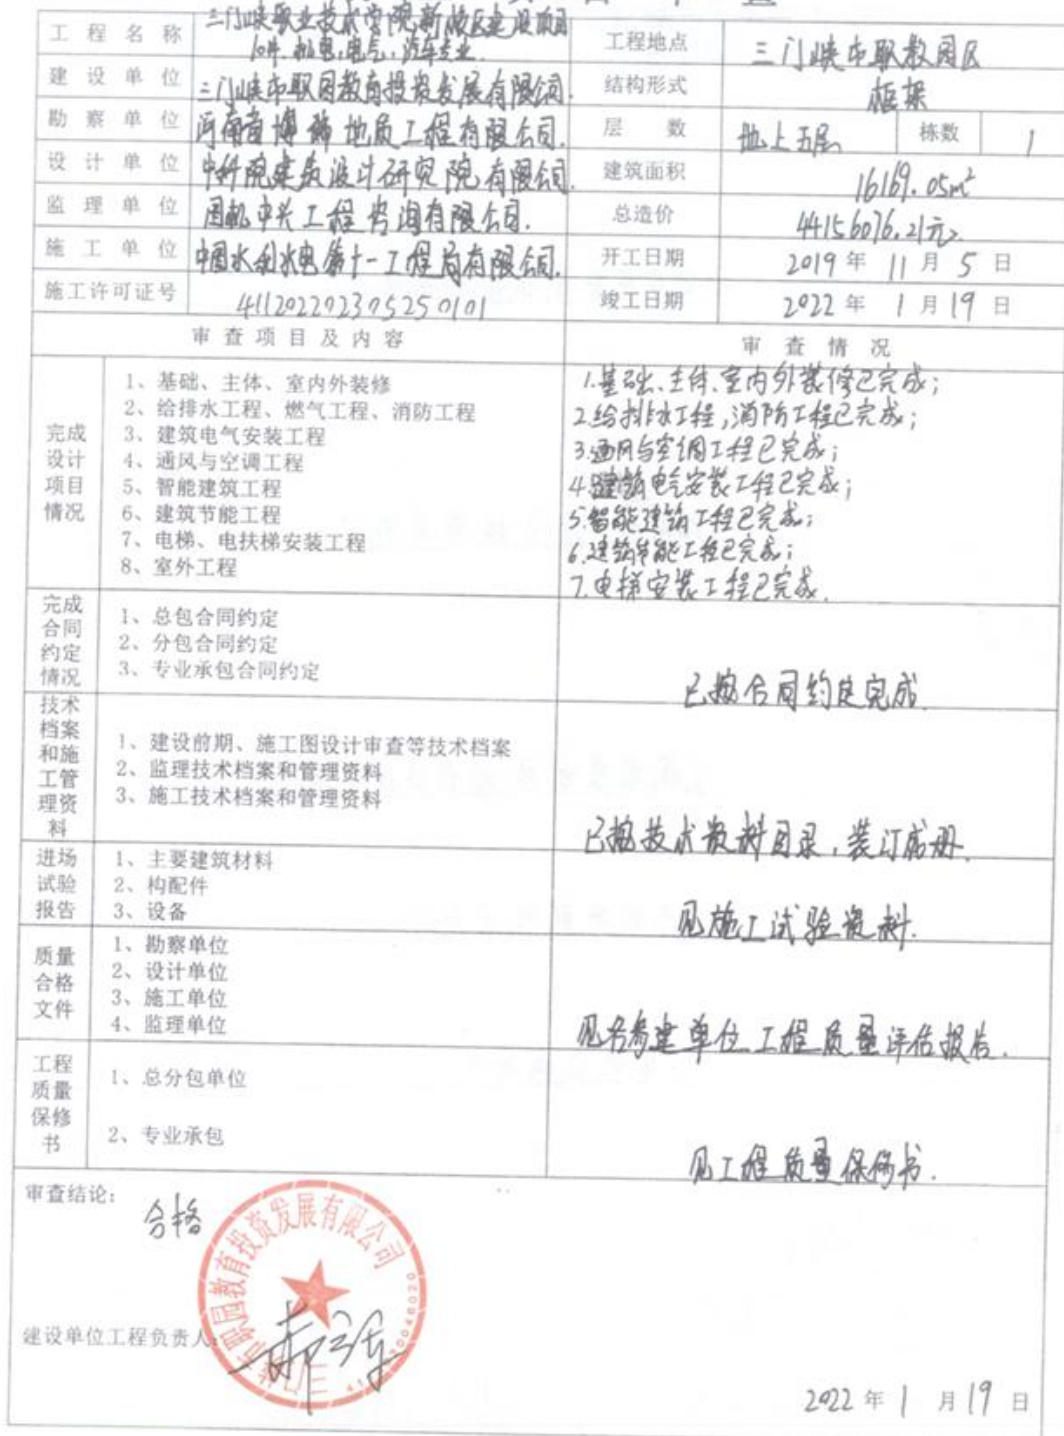 工程名称 三门峡职业技术学院新校区建设项目 工程地点 三门峡市职教园区
10#、机电,电气,汽车专业
建设单位 三门峡市职园教育投资发展有限公司. 结构形式 框架
勘察单位 地质工程有限公司. 层数 地上五层 栋数 1
设计单位 中科院建筑设计研究院有限公司. 建筑面积 16169.05m²
监理单位 国机中兴工程咨询有限公司. 总造价 44156076.21元
施工单位 中国水利水电第十一工程局有限公司. 开工日期 2019年11月5日
施工许可证号 411202202305250101 竣工日期 2022年1月19日
审查项目及内容 审查情况
完成设计项目情况
1、基础、主体、室内外装修
2、给排水工程、燃气工程、消防工程
3、建筑电气安装工程
4、通风与空调工程
5、智能建筑工程
6、建筑节能工程
7、电梯、电扶梯安装工程
8、室外工程
1.基础、主体、室内外装修已完成;
2.给排水工程,消防工程已完成;
3.通风与空调工程已完成;
4.建筑电气安装工程已完成;
5.智能建筑工程已完成;
6.建筑节能工程已完成;
7.电梯安装工程已完成.
完成合同约定情况
1、总包合同约定
2、分包合同约定
3、专业承包合同约定
已按合同约定完成.
技术档案和施工管理资料
1、建设前期、施工图设计审查等技术档案
2、监理技术档案和管理资料
3、施工技术档案和管理资料
已按技术资料目录,装订成册.
进场试验报告
1、主要建筑材料
2、构配件
3、设备
见施工试验资料.
质量合格文件
1、勘察单位
2、设计单位
3、施工单位
4、监理单位
见各参建单位工程质量评估报告.
工程质量保修书
1、总分包单位
2、专业承包
见工程质量保修书.
审查结论:
合格
三门峡市职园教育投资发展有限公司
建设单位工程负责人:
2022年1月19日